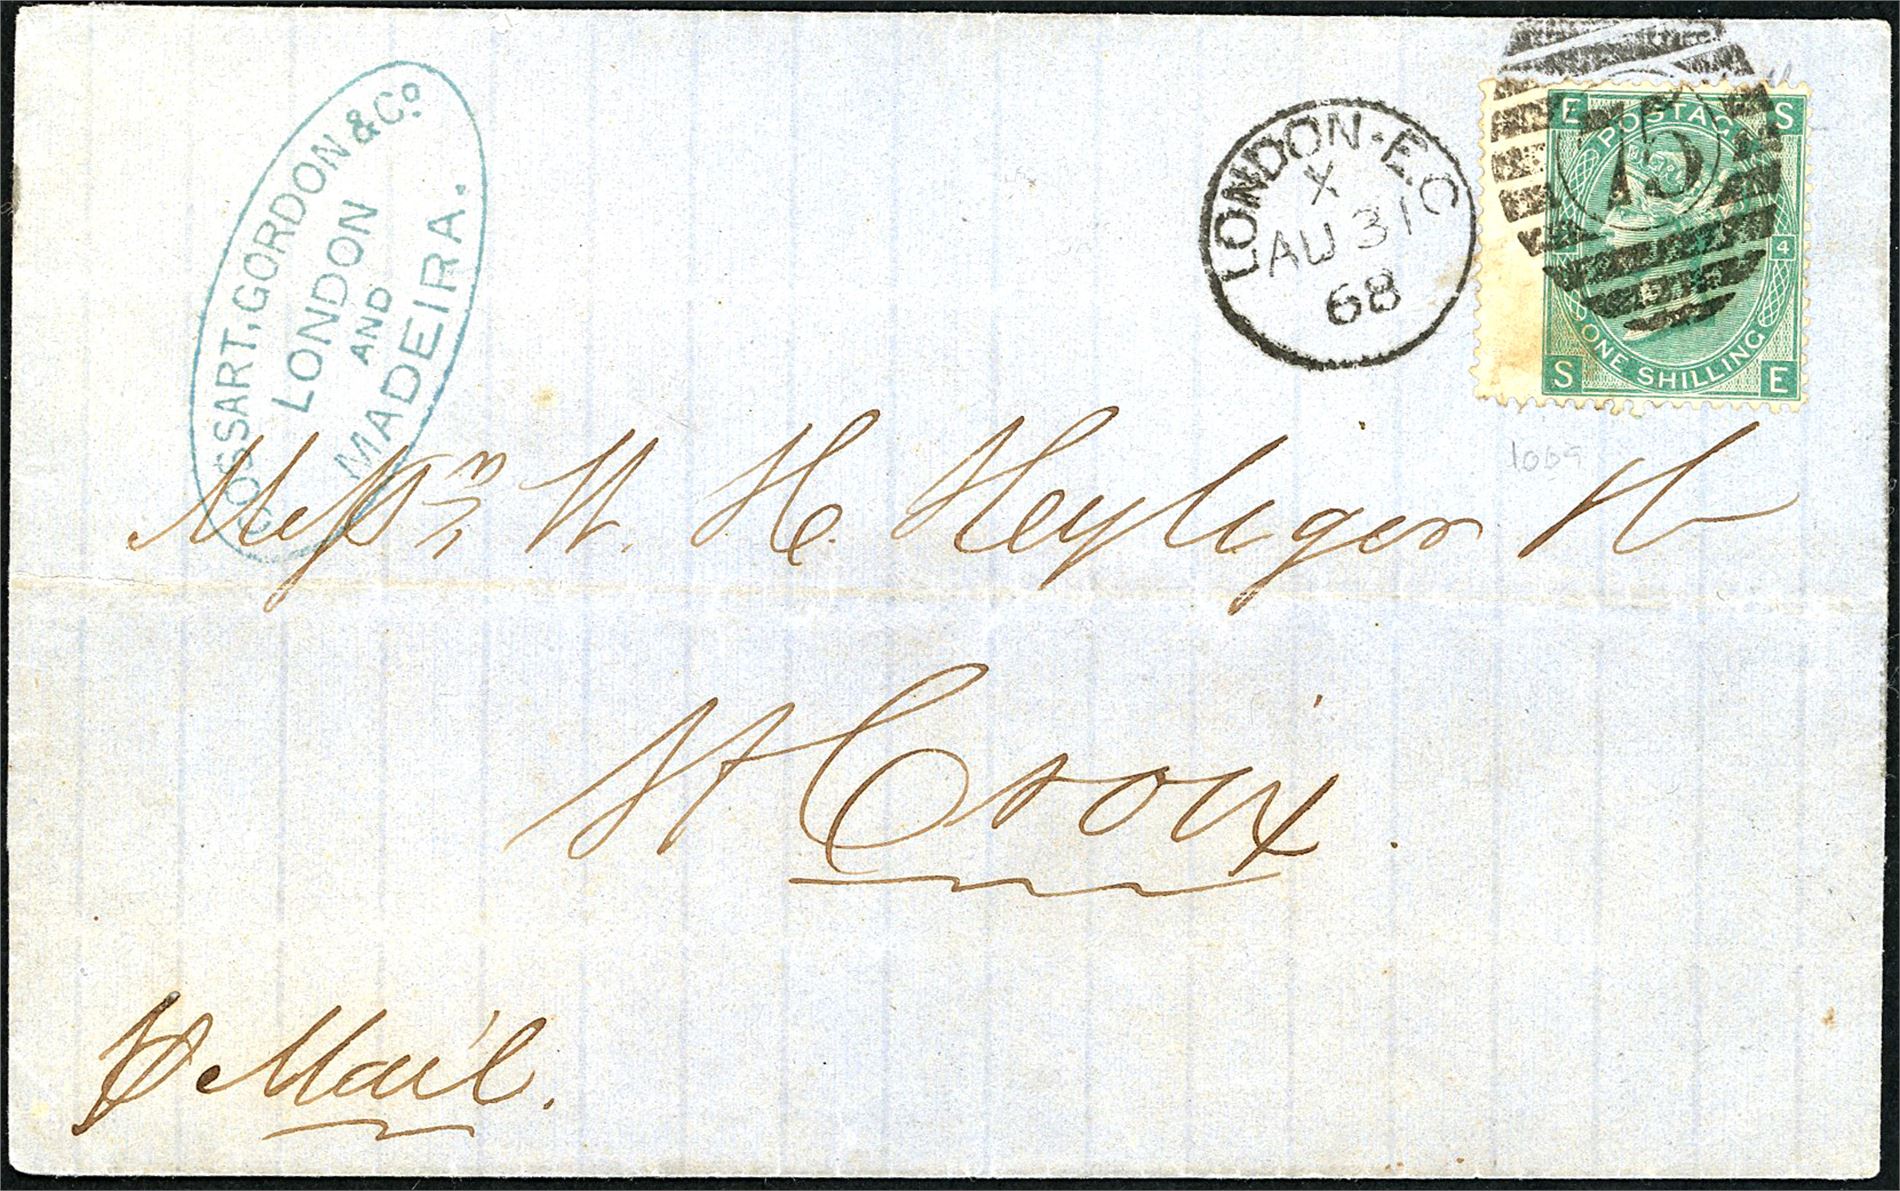 COSSART, GORDON & Co.
LONDON
AND
MADEIRA.
LONDON·E.C
X
AU 31
68
75
E POSTAGE S
4
ONE SHILLING
S E
1009
Messrs W. H. Heyliger &Co
St Croix.
p Mail.